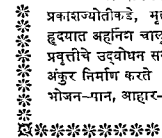 प्रकाशज्योतीकडे, मृ
हृदयात अहर्निश चालू
प्रवृत्तीचे उद्बोधन स
अंकुर निर्माण करते
भोजन-पान, आहार-